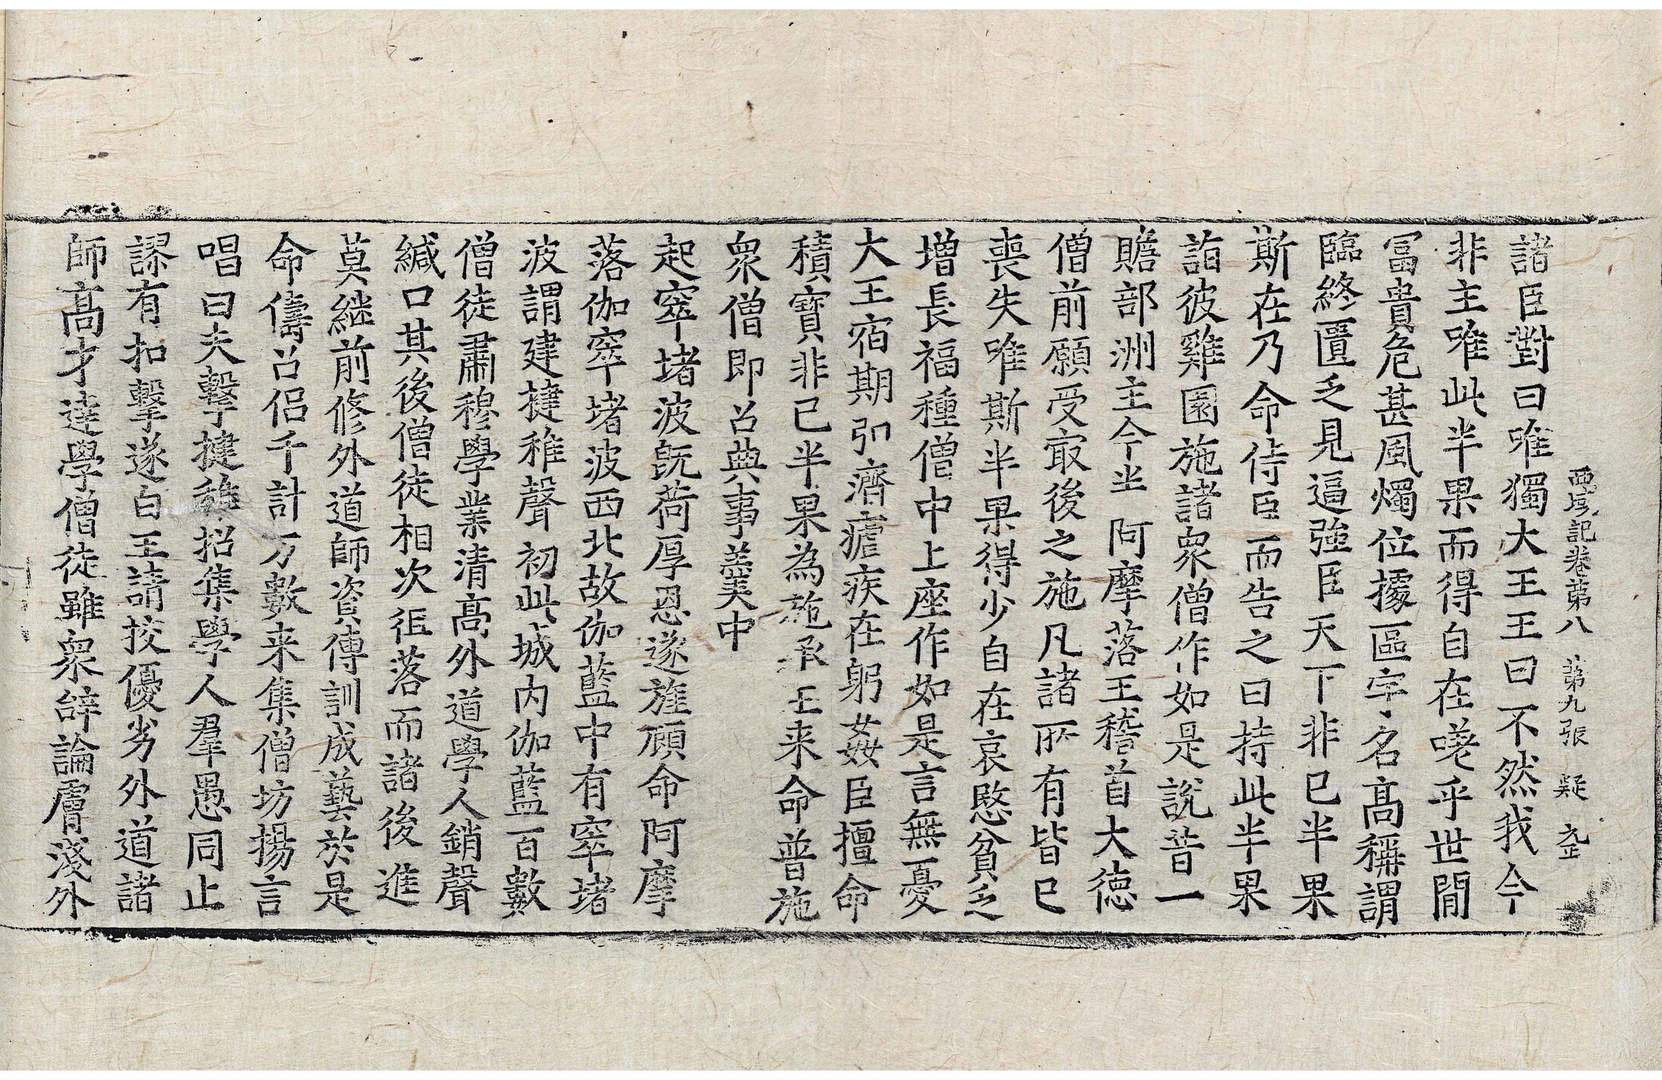 西域記卷第八 第九張 疑
諸臣對曰唯獨大王王曰不然我今
非主唯此半果而得自在嗟乎世間
冨貴危甚風燭位據區宇名髙稱謂
臨終匱乏見逼強臣天下非已半果
斯在乃命侍臣而告之曰持此半果
詣彼雞園施諸衆僧作如是說昔一
贍部洲主今半阿摩落王稽首大德
僧前願受冣後之施凡諸所有皆已
喪失唯斯半果得少自在哀愍貧乏
增長福種僧中上座作如是言無憂
大王宿期弘濟瘧疾在躬姦臣擅命
積寶非已半果為施承王来命普施
衆僧即召典事羹中
起窣堵波旣荷厚恩遂旌顧命阿摩
落伽窣堵波西北故伽藍中有窣堵
波謂建揵稚聲初此城内伽藍百數
僧徒肅穆學業清髙外道學人銷聲
緘口其後僧徒相次徂落而諸後進
莫継前修外道師資傳訓成藝於是
命儔召侣千計万數来集僧坊揚言
唱曰夫擊揵稚招集學人羣愚同止
謬有扣擊遂白王請挍優劣外道諸
師髙才達學僧徒雖衆辝論膚淺外